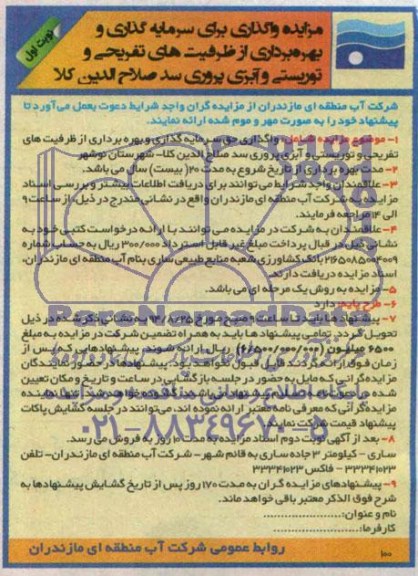 مزایده واگذاری برای سرمایه گذاری و
بهره‌برداری از ظرفیت های تفریحی و
توریستی و آبزی پروری سد صلاح الدین کلا
نوبت اول
شرکت آب منطقه ای مازندران از مزایده گران واجد شرایط دعوت بعمل می‌آورد تا
پیشنهاد خود را به صورت مهر و موم شده ارائه نمایند.
۱- موضوع مزایده شامل: واگذاری حق سرمایه گذاری و بهره برداری از ظرفیت های
تفریحی و توریستی و آبزی پروری سد صلاح الدین کلا- شهرستان نوشهر
۲- مدت بهره برداری از تاریخ شروع به مدت ۲۰ (بیست) سال می باشد.
۳- علاقمندان واجد شرایط می توانند برای دریافت اطلاعات بیشتر و بررسی اسناد
مزایده به شرکت آب منطقه ای مازندران واقع در نشانی مندرج در ذیل، از ساعت ۹
الی ۱۴ مراجعه فرمایند.
۴- علاقمندان به شرکت در مزایده می توانند با ارائه درخواست کتبی خود به
نشانی ذیل در قبال پرداخت مبلغ غیر قابل استرداد ۳۰۰/۰۰۰ ریال به حساب شماره
۲۱۶۵۰۸۵۰۰۴۰۰۹ بانک کشاورزی شعبه منابع طبیعی ساری بنام آب منطقه ای مازندران،
اسناد مزایده دریافت دارند.
۵- مزایده به روش یک مرحله ای می باشد.
۶- طرح پایه: دارد
۷- پیشنهادها باید تا ساعت ۹ صبح مورخ ۹۴/۸/۲۵ به نشانی ذکر شده در ذیل
تحویل گردد. تمامی پیشنهادها باید به همراه تضمین شرکت در مزایده به مبلغ
۶۵۰۰ میلیون (۶/۵۰۰/۰۰۰/۰۰۰) ریال ارائه شوند. پیشنهادهایی که پس از
زمان فوق ارائه گردند قابل قبول نخواهد بود. پیشنهادها در حضور نمایندگان
مزایده گرانی که مایل به حضور در جلسه بازگشایی در ساعت و تاریخ و مکان تعیین
مزایده گرانی که معرفی نامه معتبر ارائه نموده اند، می‌توانند در جلسه گشایش پاکات
پیشنهاد قیمت شرکت نمایند.
۸- بعد از آگهی نوبت دوم اسناد مزایده به مدت ۱۰ روز به فروش می رسد.
ساری - کیلومتر ۳ جاده ساری به قائم شهر- شرکت آب منطقه ای مازندران- تلفن
۳۳۳۴۱۰۲۳ - فاکس ۳۳۳۴۱۰۲۳
۹- پیشنهادهای مزایده گران به مدت ۱۷۰ روز پس از تاریخ گشایش پیشنهادها به
شرح فوق الذکر معتبر باقی خواهد ماند.
نام و عنوان:
کارفرما:
روابط عمومی شرکت آب منطقه ای مازندران
۱۰۰
پایگاه اطلاع رسانی مناقصه و مزایده
۰۲۱-۸۸۳۴۹۶۷۰-۵